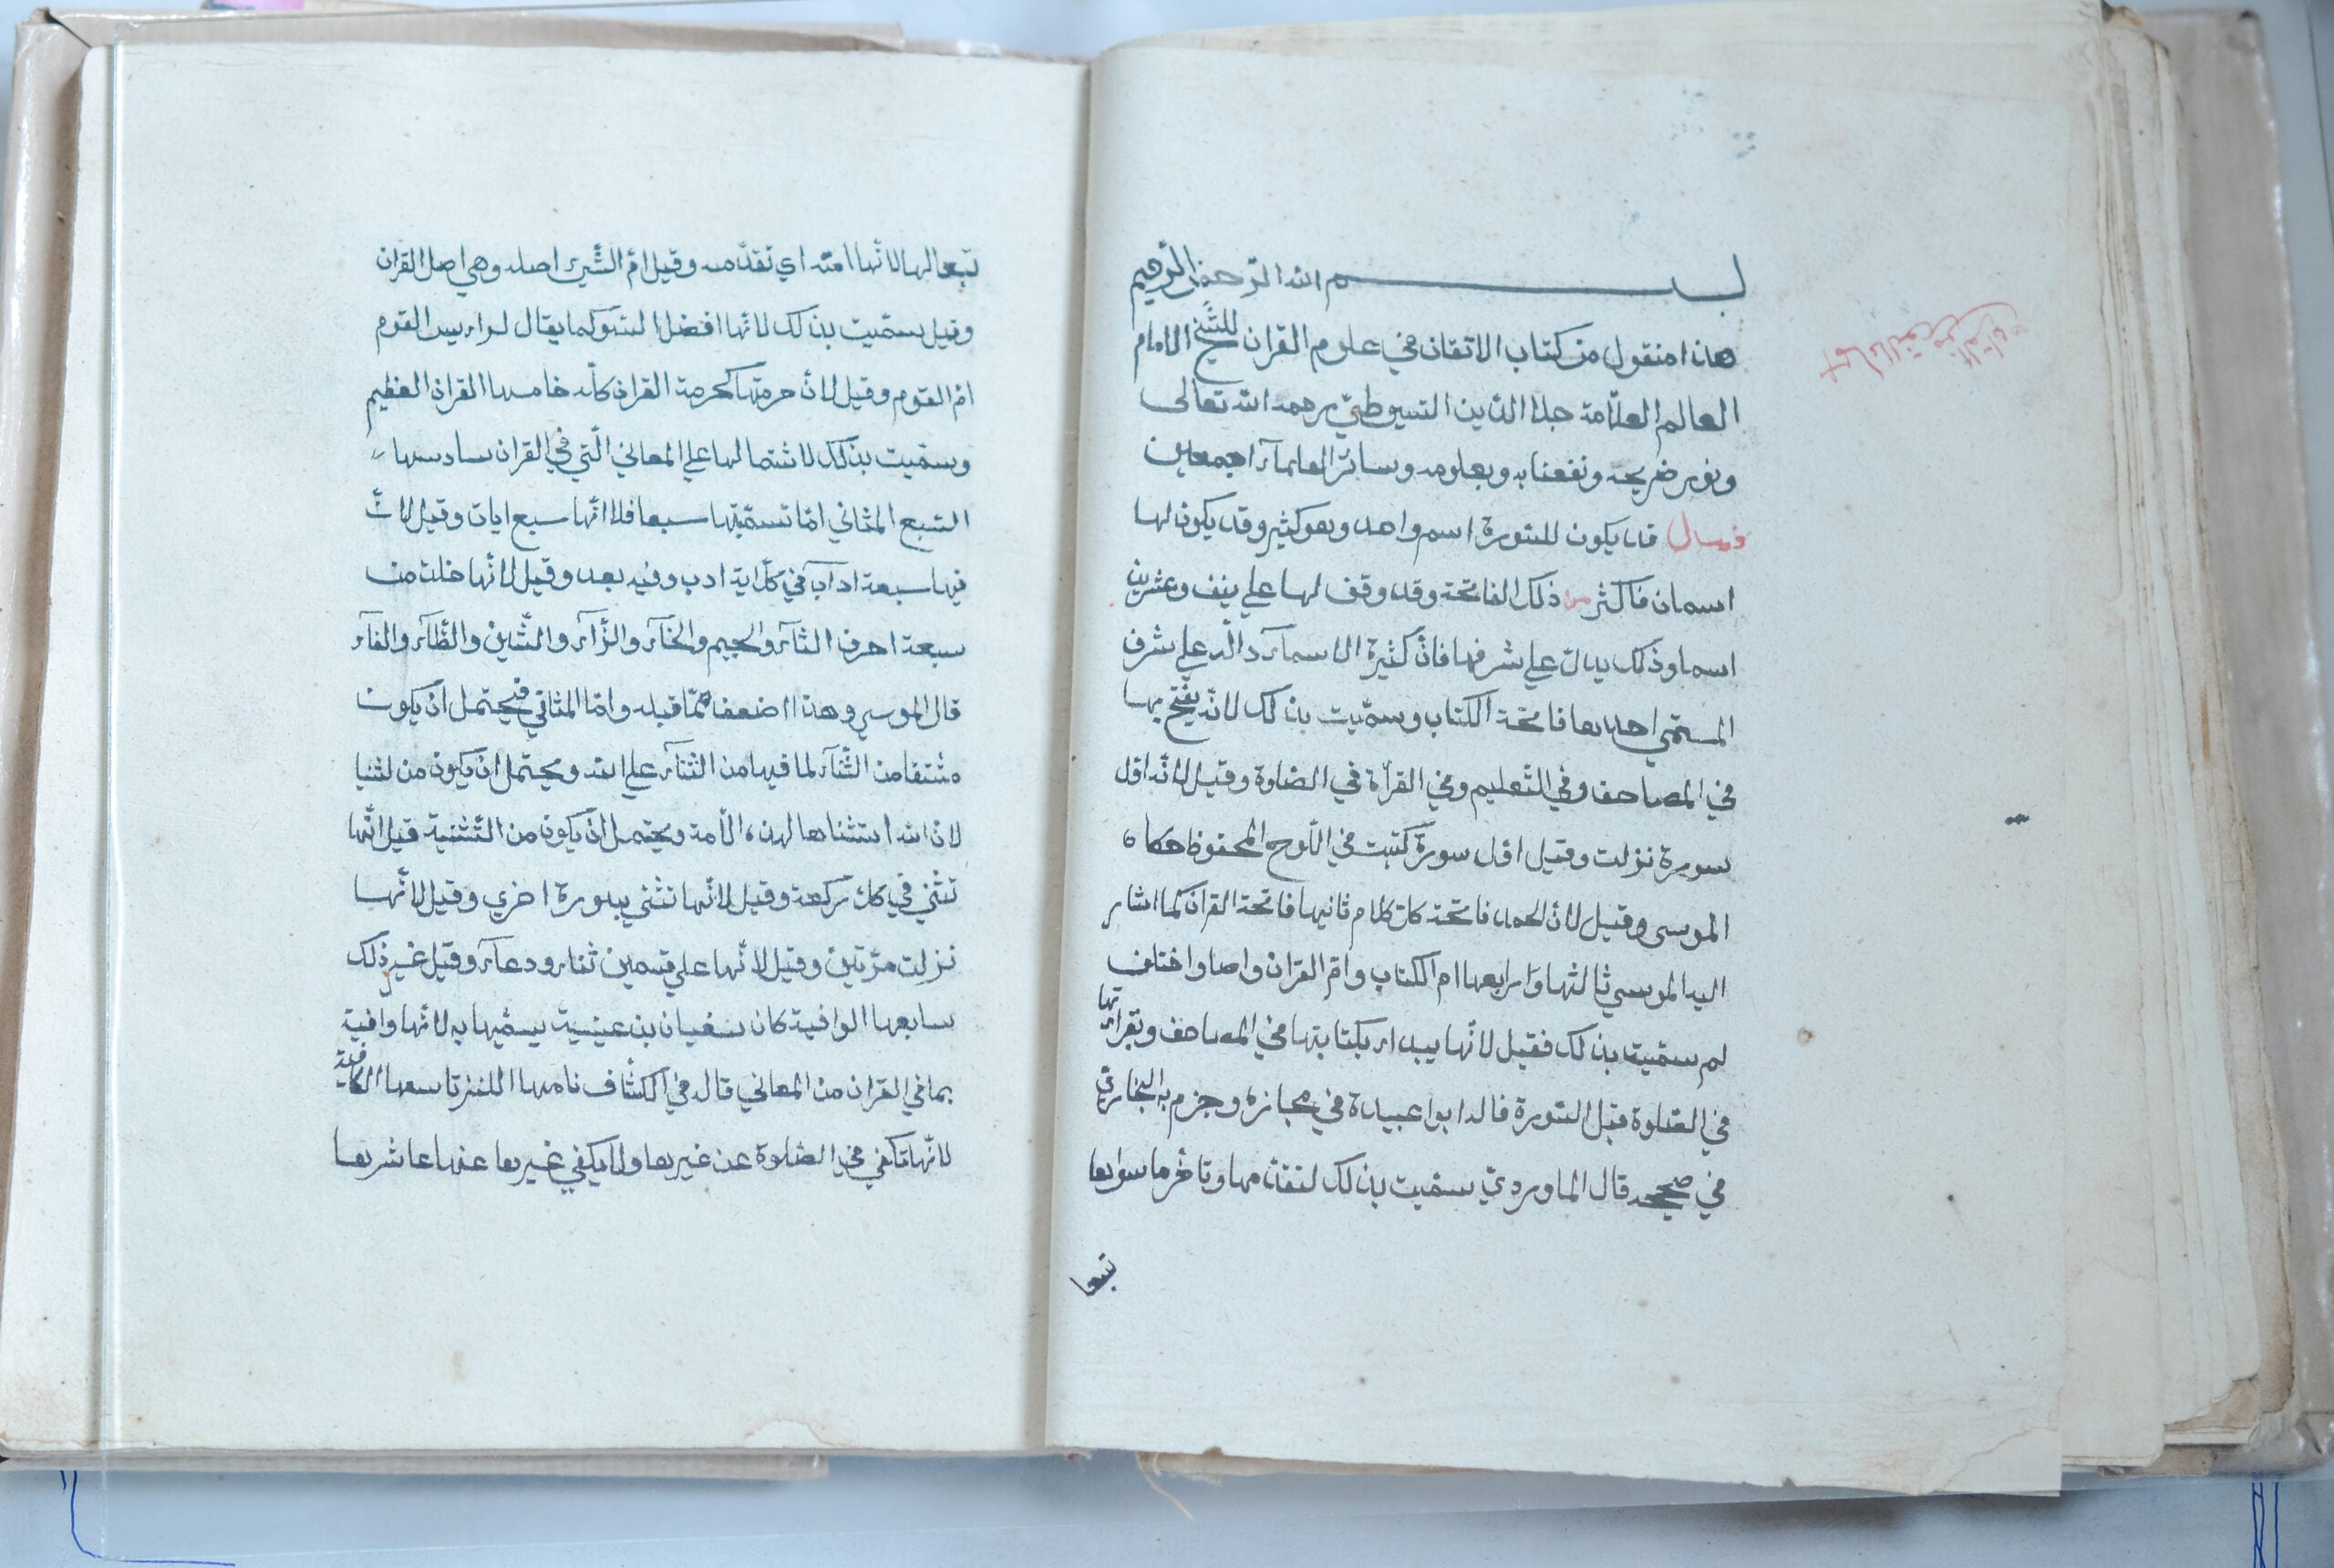 بسم الله الرحمن الرحيم
هذا منقول من كتاب الاتقان في علوم القران للشيخ الامام
العالم العلّامة جلا الدّين السّيوطيّ رحمه الله تعالى
ونور ضريحه ونفعنا به وبعلومه وسائر العلمآء اجمعين
فصل قد يكون للسّورة اسم واحد وهو كثير وقد يكون لها
اسمان فاكثر من ذلك الفاتحة وقد وقف لها علي نيف وعشرين
اسما وذلك يدلّ علي شرفها فانّ كثيرة الاسمآء دالّة علي شرف
المسمّي احدها فاتحة الكتاب وسمّيت بذلك لانّه يفتح بها
في المصاحف وفي التّعليم وفي القرأة في الصّلوة وقيل لانّه اوّل
سورة نزلت وقيل اوّل سورة كتبت في اللّوح المحفوظ حكاه
المرسي وقيل لانّ الحمد فاتحة كلّ كلام ثانيها فاتحة القران كما اشار
اليه المرسي ثالثها وا رابعها ام الكتاب وامّ القران واصا واختلف
لم سمّيت بذلك فقيل لانّها يبداء بكتابتها في المصاحف وبقراءتها
في الصّلوة قبل السّورة قاله ابوا عبيدة في مجازه وجزم به البخاريّ
في صحيحه قال الماورديّ سمّيت بذلك لتقدّمها وتاخّر ما سواها
تبعا
تبعا لها لانّها امّته اي تقدّمه وقيل امّ الشّيء اصله وهي اصل القران
وقيل سمّيت بذلك لانّها افضل السّور كما يقال لراءيس القوم
امّ القوم وقيل لانّ حرمتها كحرمة القران كلّه خامسها القران العظيم
وسمّيت بذلك لاشتمالها علي المعاني الّتي في القران سادسها
السّبع المثاني امّا تسميتها سبعا فلا انّها سبع ايات وقيل لانّ
فيها سبعة اداب في كلّ اية ادب وفيه بعد وقيل لانّها خلت من
سبعة احرف الثّآء والجيم والخآء والزّآء والشّين والظّآء والفآء
قال المرسي وهذا اضعف ممّا قبله وامّا المثاني فيحتمل ان يكون
مشتقا من الثّنآء لما فيها من الثّنآء علي الله ويحتمل ان يكون من لثنيا
لانّ الله استثناها لهذه الأمة ويحتمل ان يكون من التّثنية قيل انّها
تثنّي في كلّ ركعة وقيل لانّها تثنّي بسورة اخري وقيل لانّها
نزلت مرّتين وقيل لانّها علي قسمين ثناء ودعآء وقيل غير ذلك
سابعها الوافية كان سفيان بن عيينية يسمّيها به لانّها وافية
بما في القران من المعاني قال في الكشّاف نامنها الكنز تاسعها الكافية
لانّها تكفي في الصّلوة عن غيرها ولا يكفي غيرها عنها عاشرها